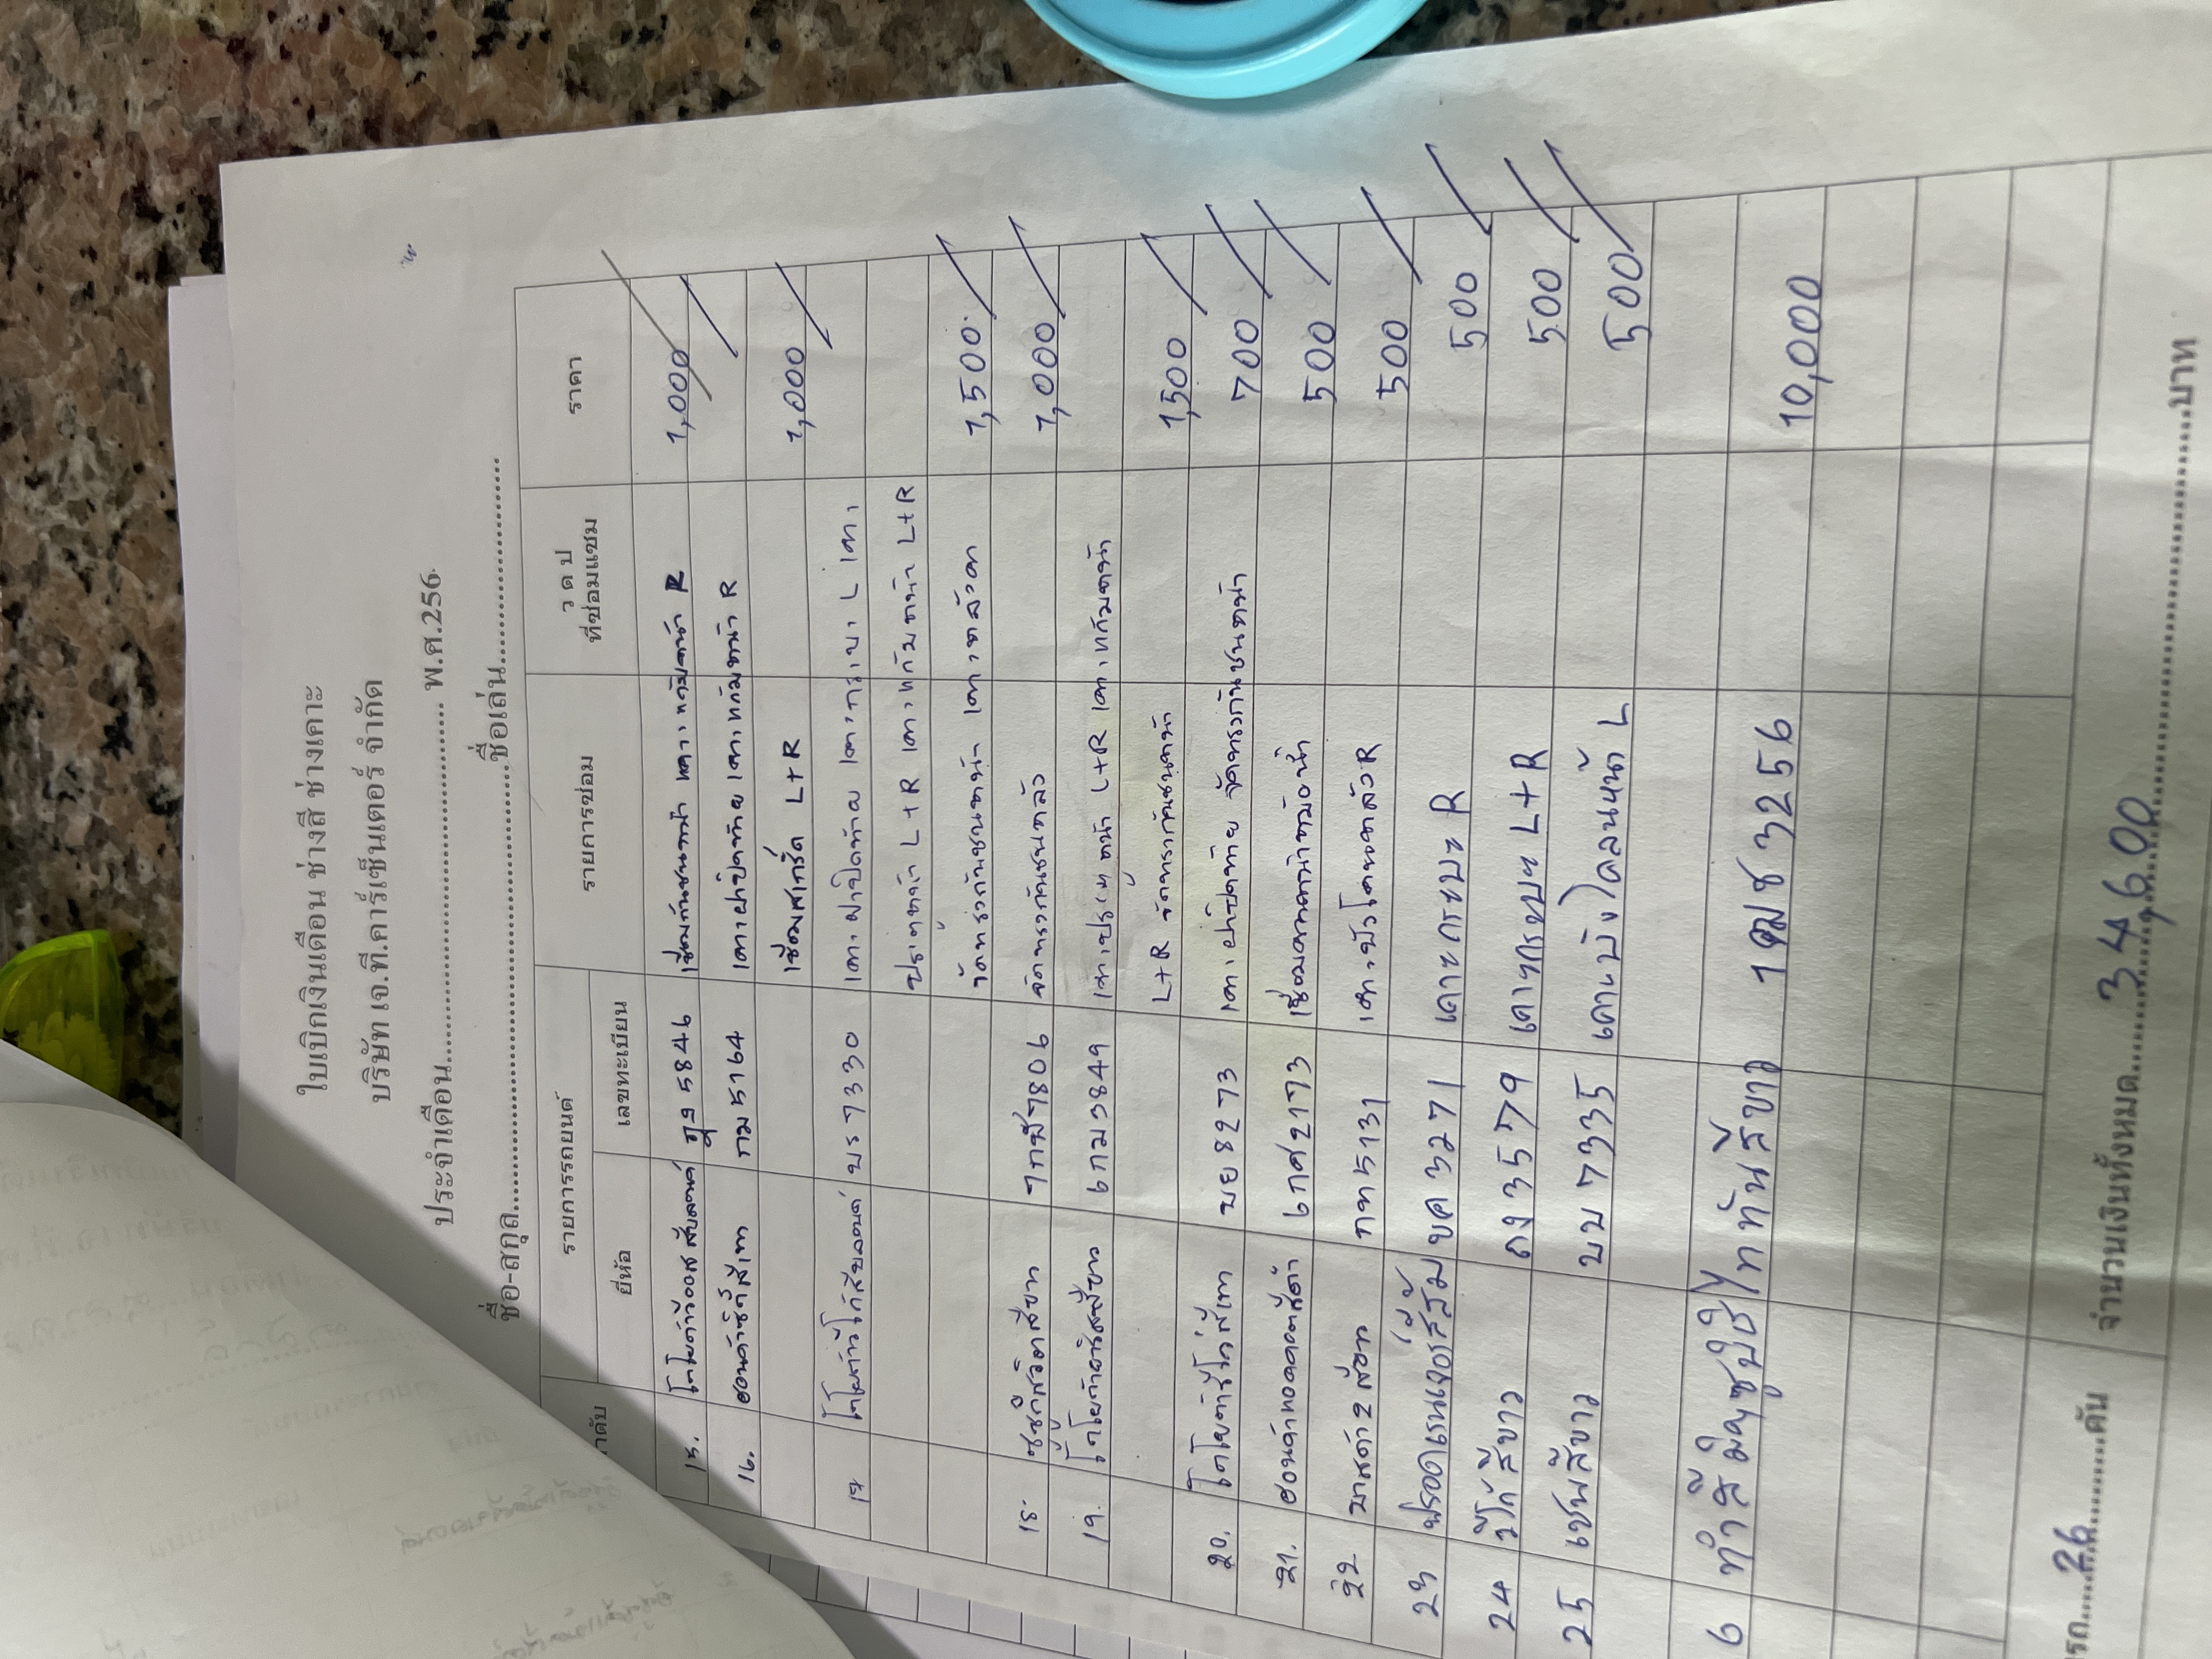 ใบเบิกเงินเดือน ช่างสี ช่างเคาะ
บริษัท เจ.ที.คาร์เซ็นเตอร์ จำกัด
ประจำเดือน.................... พ.ศ.256
ชื่อ-สกุล....................ชื่อเล่น....................
รายการรถยนต์ รายการซ่อม ว ด ป ที่ซ่อมแซม ราคา
ยี่ห้อ เลขทะเบียน
15. 5846 เชื่อมกันชนหน้า เคาะแก้มหน้า R 1,000
16. ฮอนด้าซิตี้สีเทา กม 5164 เคาะฝาปิดท้าย เคาะแก้มหน้า R
เชื่อมสเกิร์ต L+R 1,000
17 บร 7330 เคาะฝาปิดท้าย เคาะกระบะ L เคาะ
ประตูหน้า L+R เคาะแก้มหน้า L+R
จัดทรงกันชนหน้า เคาะหลังคา 1,500
18. ซูซูกิสวิตสีขาว 7กฬ7806 จัดทรงกันชนหลัง 1,000
19. โตโยต้ายาริสสีขาว 6กม3849 เคาะประตูหน้า L+R เคาะแก้มหน้า
L+R จัดทรงกันชนหน้า 1,500
20. โตโยต้ารีโว่สีเทา บย 8273 เคาะฝาปิดท้าย จัดทรงกันชนหน้า 700
21. 6กศ2173 500
22 มาสด้า2 สีขาว กท 5131 เคาะบังโคลนหลัง R 500
23 ฟรอดเรนเจอร์สีส้ม ขค 3271 เคาะกระบะ R 500
24 วีโก้สีขาว ถง 3579 เคาะกระบะ L+R 500
25 เชฟสีขาว บบ 7335 เคาะบังโคลนหน้า L 500
6 ทำสีมิตซูบิชิไททันสีขาว 1ฒช 3256 10,000
รถ....26....คัน จำนวนเงินทั้งหมด....34,600....บาท